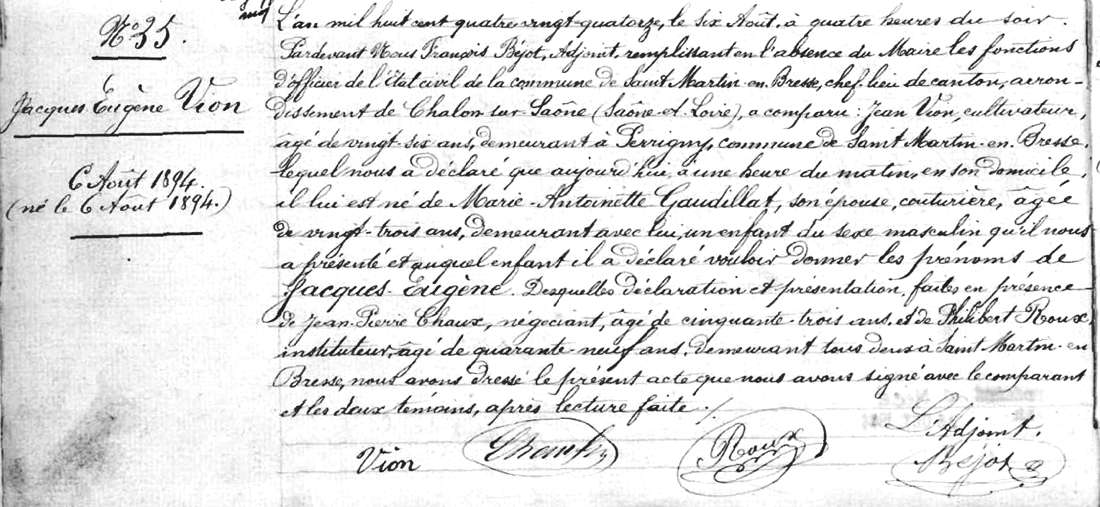 N° 35.
Jacques Eugène Vion
6 Août 1894.
(né le 6 Août 1894.)
L'an mil huit cent quatre vingt-quatorze, le six Août, à quatre heures du soir.
Pardevant Nous François Béjot, Adjoint, remplissant en l'absence du Maire les fonctions
d'officier de l'Etat civil de la commune de Saint Martin-en-Bresse, chef-lieu de canton, arron-
dissement de Chalon-sur-Saône (Saône-et-Loire), a comparu : Jean Vion, cultivateur,
âgé de vingt-six ans, demeurant à Perrigny, commune de Saint Martin-en-Bresse,
lequel nous a déclaré que aujourd'hui, à une heure du matin, en son domicile,
il lui est né de Marie-Antoinette Gaudillat, son épouse, couturière, âgée
de vingt-trois ans, demeurant avec lui, un enfant du sexe masculin qu'il nous
a présenté et auquel enfant il a déclaré vouloir donner les prénoms de
Jacques-Eugène. Desquelles déclaration et présentation, faites en présence
de Jean-Pierre Chaux, négociant, âgé de cinquante-trois ans, et de Philibert Roux,
instituteur, âgé de quarante-neuf ans, demeurant tous deux à Saint Martin-en
Bresse, nous avons dressé le présent acte que nous avons signé avec le comparant
et les deux témoins, après lecture faite ./.
Vion
Roux
L'Adjoint.
Béjot